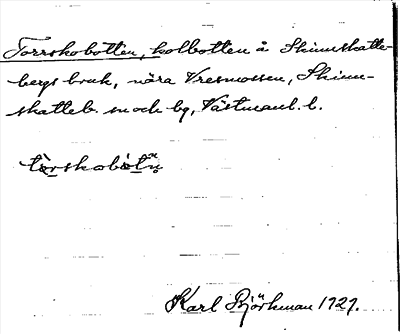 Torrskobotten, kolbotten å Skinnskatte-
bergs bruk, nära Vresmossen, Skinn-
skatteb. sn och bg, Västmanl. l.
tòrskobòtn̥
Karl Björkman 1929.